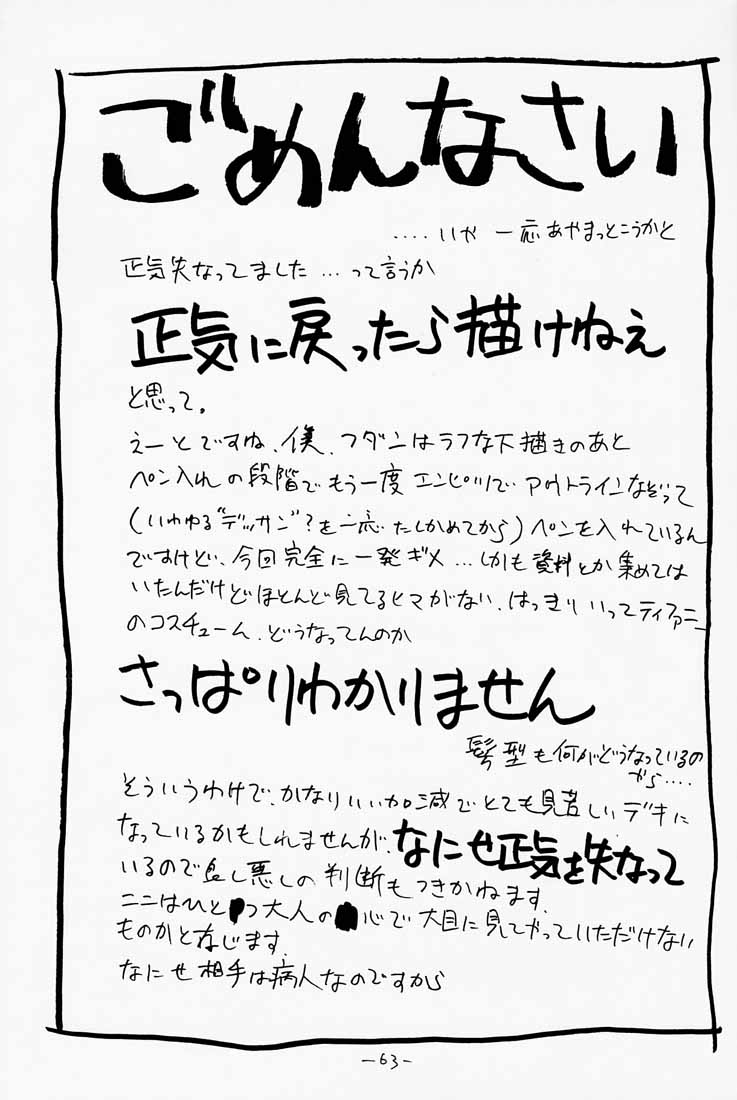 ごめんなさい
‥‥いや 一応あやまっとこうかと
正気失なってました…って言うか
正気に戻ったら描けねえ
と思って。
えーとですね、僕、フダンはラフな下描きのあと
ペン入れの段階でもう一度エンピツでアウトラインなぞって
(いわゆる"デッサン"?を一応たしかめてから)ペンを入れているん
ですけど、今回完全に一発ギメ…しかも資料とか集めては
いたんだけどほとんど見てるヒマがない、はっきりいってティファニー
のコスチューム、どうなってんのか
さっぱりわかりません
髪型も何がどうなっているの
やら‥‥
そういうわけで、かなりいい加減でとても見苦しいデキに
なっているかもしれませんが、なにせ正気を失なって
いるので良し悪しの判断もつきかねます。
ここはひとつ大人の心で大目に見てやっていただけない
ものかと存じます。
なにせ相手は病人なのですから
-63-